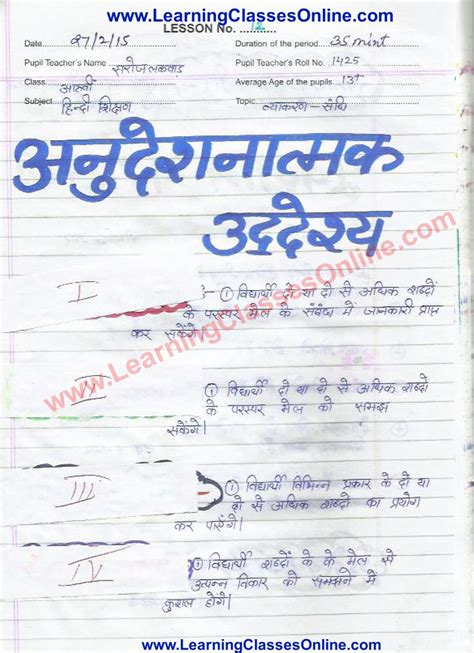 www.LearningClassesOnline.com
LESSON No. ...12...
Date 27/2/15 Duration of the period 35 mint
Pupil Teacher's Name सरोज लकवाड Pupil Teacher's Roll No. 1425
Class आठवीं Average Age of the pupils 13+
Subject हिन्दी शिक्षण Topic व्याकरण - संधि
अनुदेशनात्मक
उद्देश्य
I
① विद्यार्थी दो या दो से अधिक शब्दों
के परस्पर मेल के संबंध में जानकारी प्राप्त
कर सकेंगे।
II
① विद्यार्थी दो या दो से अधिक शब्दों
के परस्पर मेल को समझ
सकेंगे।
III
① विद्यार्थी विभिन्न प्रकार के दो या
दो से अधिक शब्दों का प्रयोग
कर पाएंगे।
IV
① विद्यार्थी शब्दों के के मेल से
उत्पन्न विकार को समझने में
कुशल होंगे।
www.LearningClassesOnline.com
www.LearningClassesOnline.com